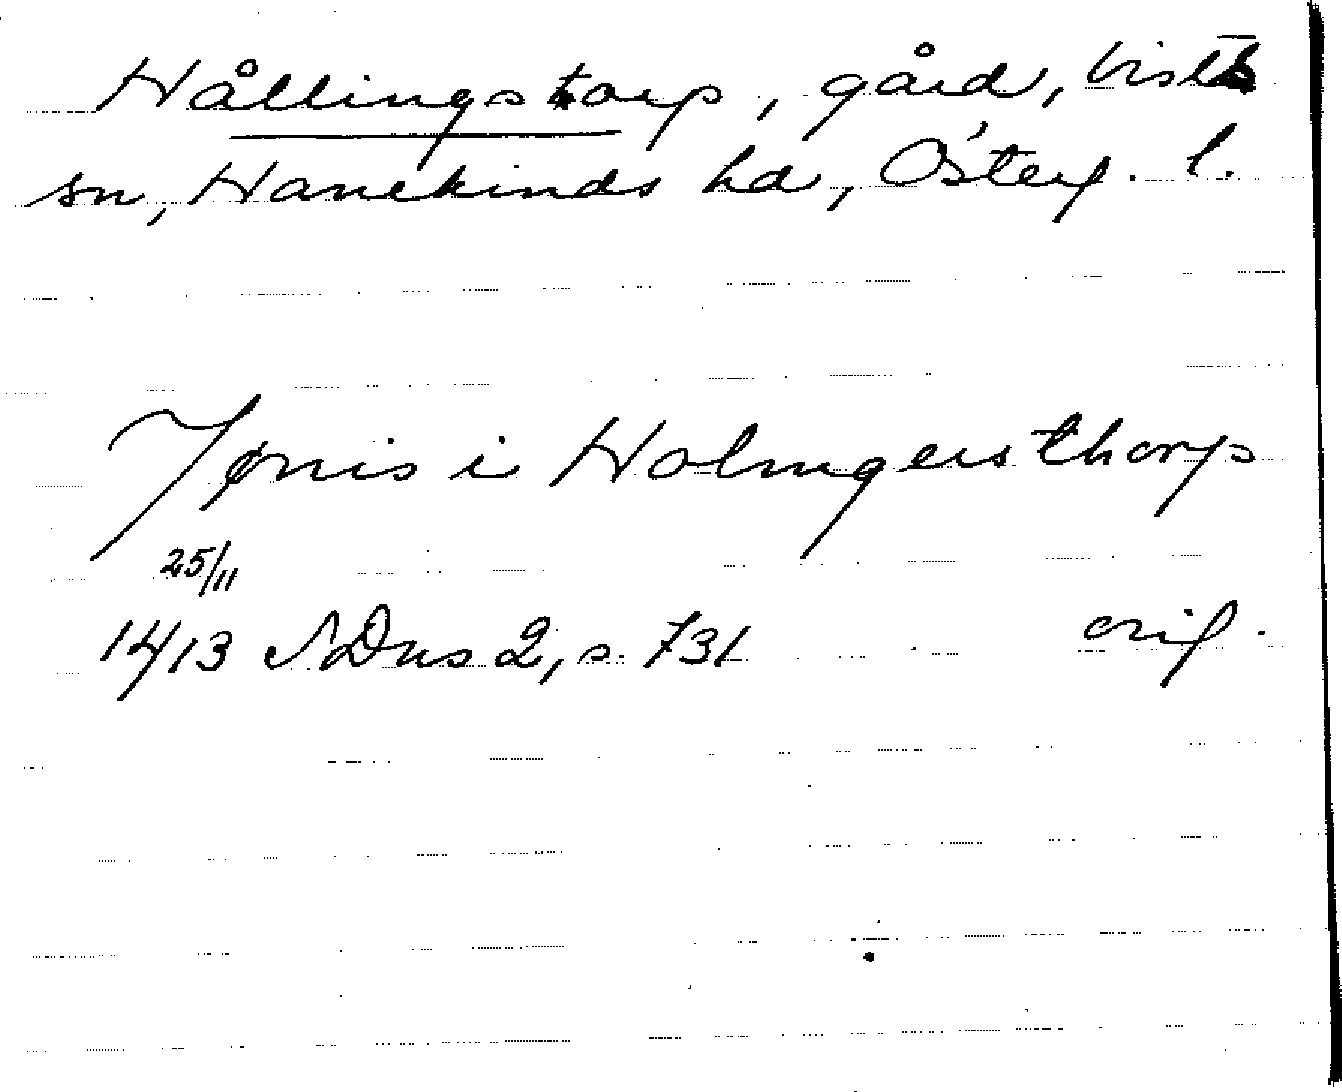 Hållingstorp, gård, Vists
sn, Hanekinds hd, Österg. l.
Jønis i Holmgersthorp
25/11
1413 SDns 2, s. 731 orig.